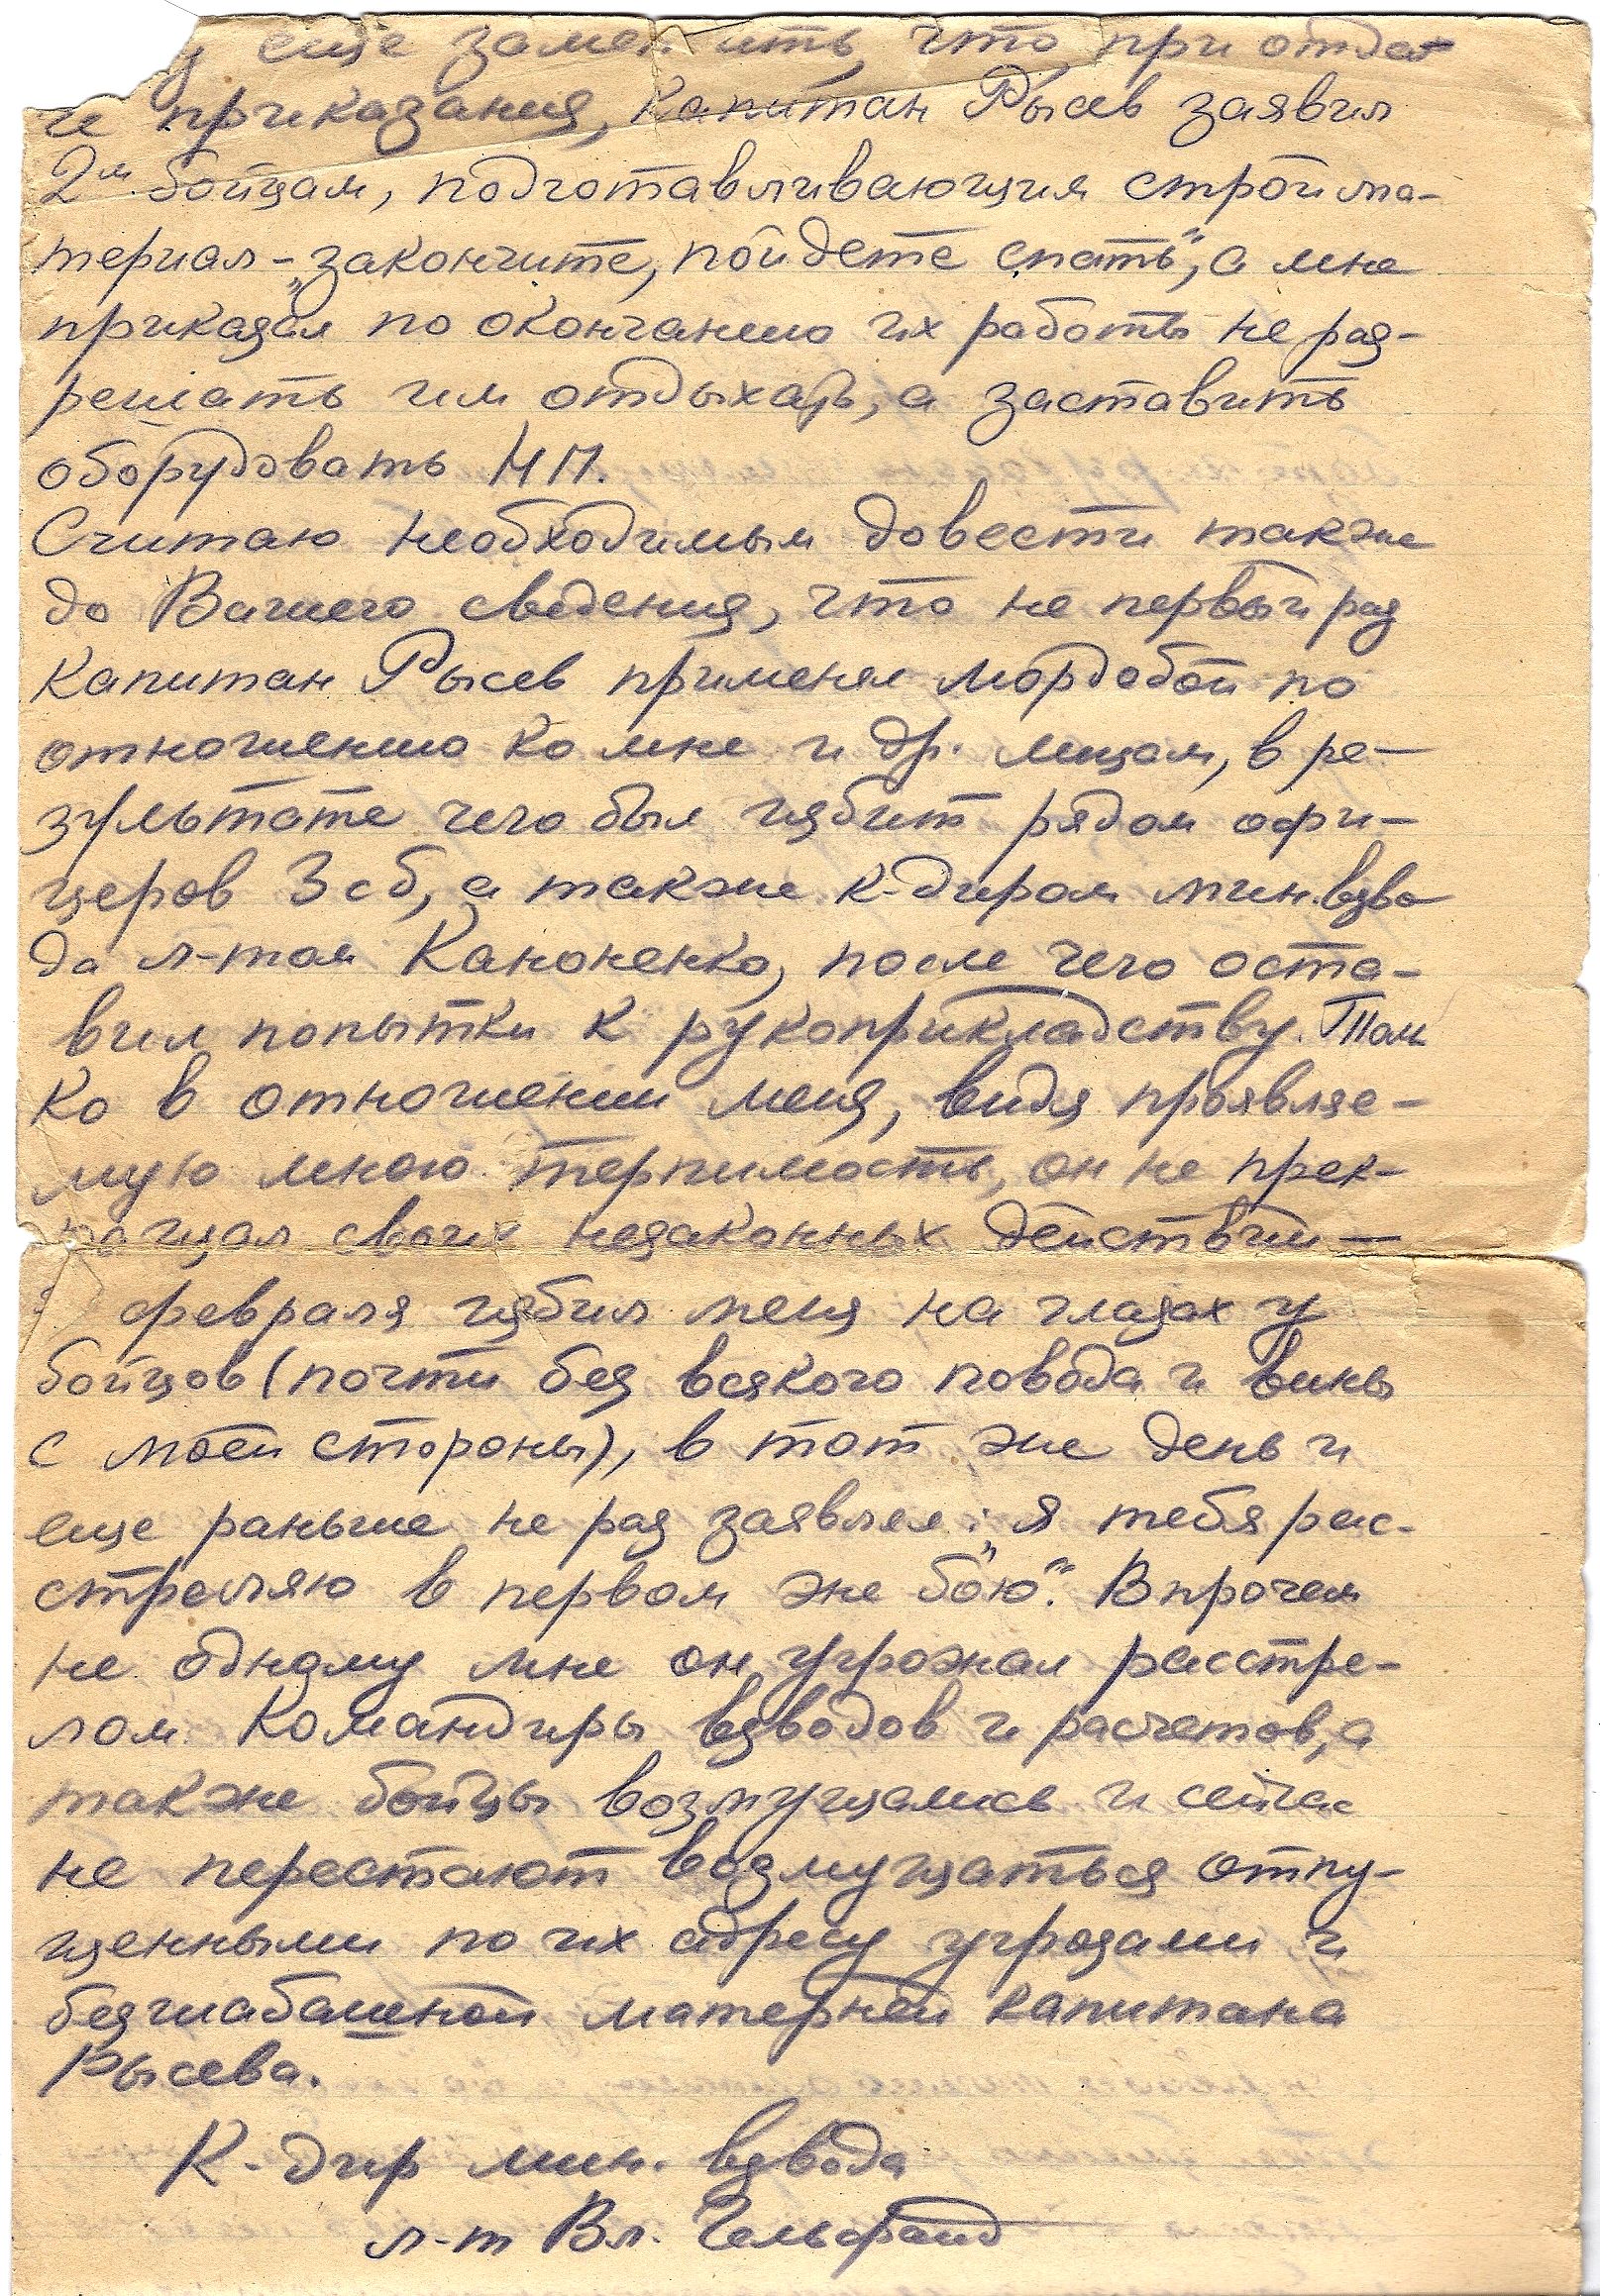 у еще заметить, что при отда-
че приказания, капитан Рысев заявил
2м бойцам, подготавливающим строй ма-
териал - „закончите, пойдете спать", а мне
приказал по окончанию их работы не раз-
решать им отдыхать, а заставить
оборудовать НП.
Считаю необходимым довести также
до Вашего сведения, что не первый раз
капитан Рысев применял мордобой по
отношению ко мне и др. лицам, в ре-
зультате чего был избит рядом офи-
церов 3 сб, а также к-диром мин. взво-
да л-том Каноненко, после чего оста-
вил попытки к рукоприкладству. Толь
ко в отношении меня, видя проявляе-
мую мною терпимость, он не прек-
ращал своих незаконных действий —
февраля избил меня на глазах у
бойцов (почти без всякого повода и вины
с моей стороны), в тот же день и
еще раньше не раз заявлял: „я тебя рас-
стреляю в первом же бою". Впрочем
не одному мне он угрожал расстре-
лом. Командиры взводов и расчетов, а
также бойцы возмущались и сейчас
не перестают возмущаться отпу-
щенными по их адресу угрозами и
безшабашной матерней капитана
Рысева.
К-дир мин. взвода
л-т Вл. Гельфанд